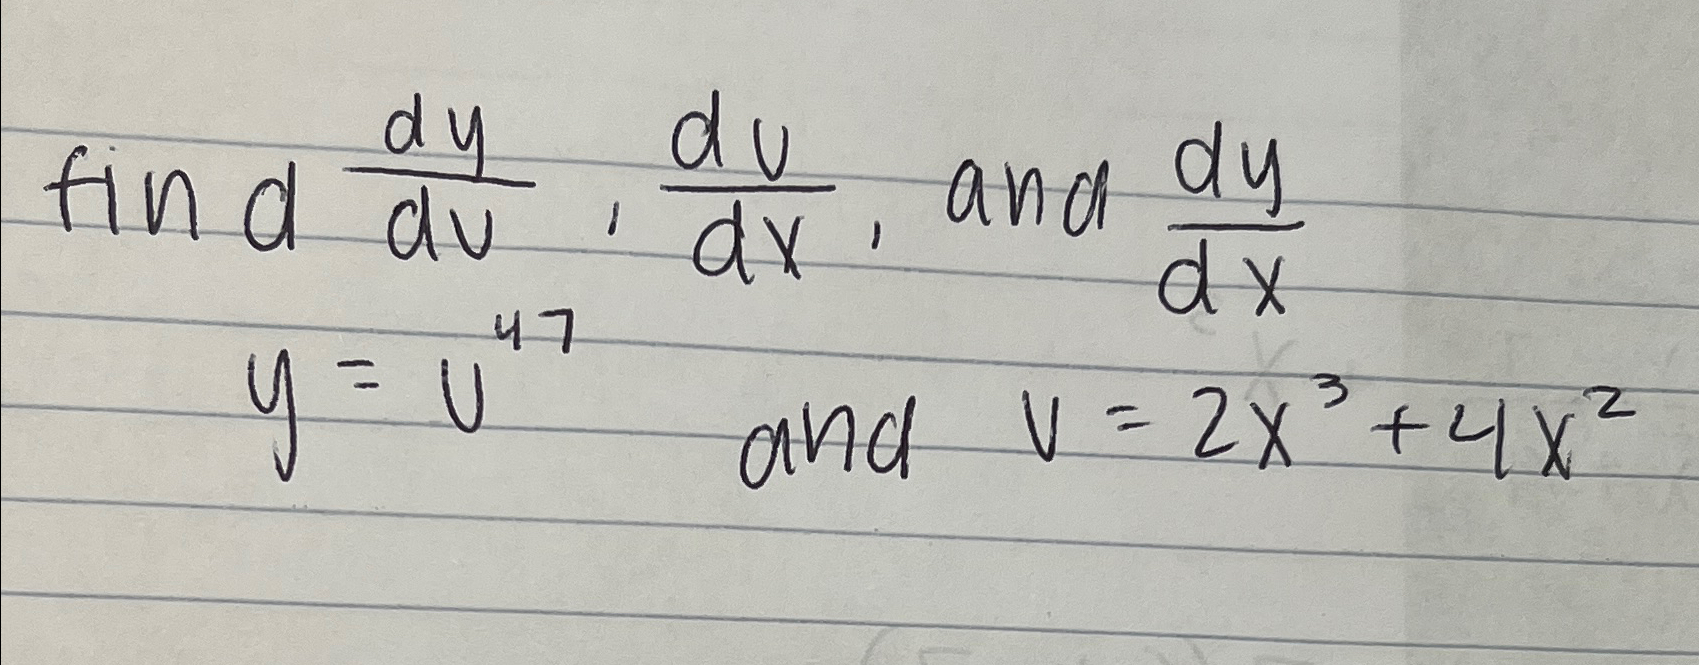 find dy/du, du/dx, and dy/dx
y = u^47 and u = 2x^3 + 4x^2